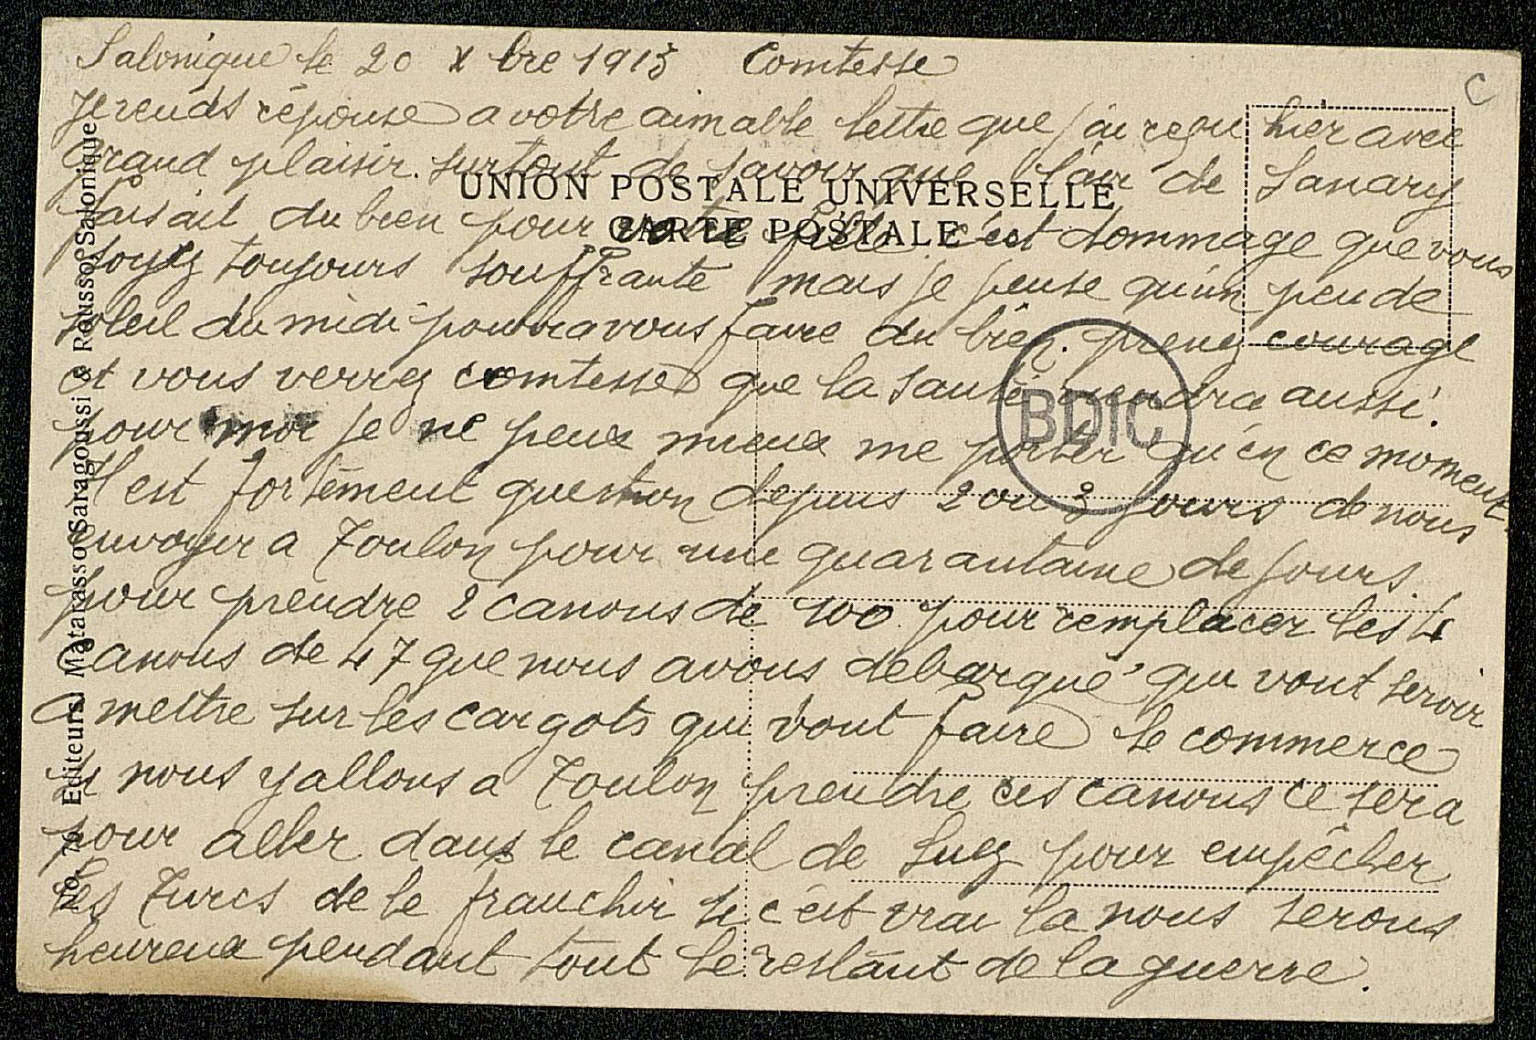 Salonique le 20 Xbre 1915 Comtesse
Je rends réponse a votre aimable lettre que j'ai reçu hier avec
grand plaisir. surtout de savoir que l'air de Sanary
faisait du bien pour votre fille. c'est dommage que vous
soyez toujours souffrante mais je pense qu'un peu de
soleil du midi pourra vous faire du bien. prenez courage
et vous verrez comtesse que la santé viendra aussi.
pour moi je ne peux mieux me porter qu'en ce moment.
Il est fortement question depuis 2 ou 3 jours de nous
envoyer a Toulon pour une quarantaine de jours
pour prendre 2 canons de 100 pour remplacer les 4
canons de 47 que nous avons debarqué qui vont servir
a mettre sur les cargots qui vont faire le commerce
si nous y allons a Toulon prendre ces canons ce sera
pour aller dans le canal de Suez pour empêcher
les Turcs de le franchir si c'est vrai la nous serons
heureux pendant tout le restant de la guerre.
UNION POSTALE UNIVERSELLE
CARTE POSTALE
No. 76 Editeurs Matarasso Saragoussi & Rousso, Salonique
BDIC
C